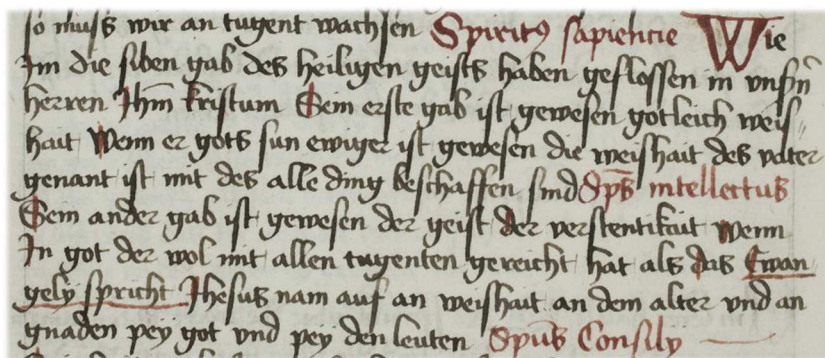 so muss wir an tugent wachsen Spiritꝰ sapiencie Wie
Im die siben gab des heiligen geists haben geflossen in vnsn̄
herren Jhm̄ kristum Sein erste gab ist gewesen gotleich weis
hait Wenn er gots sun ewiger ist gewesen die weishait des vater
genant ist mit des alle ding beschaffen sind Sps̄ intellectus
Sein ander gab ist gewesen der geist der verstentikait wenn
In got der wol mit allen tugenten gereicht hat als das Ewan
gely spricht Jhesus nam auf an weishait an dem alter vnd an
gnaden pey got vnd pey den leuten Spūs Consily